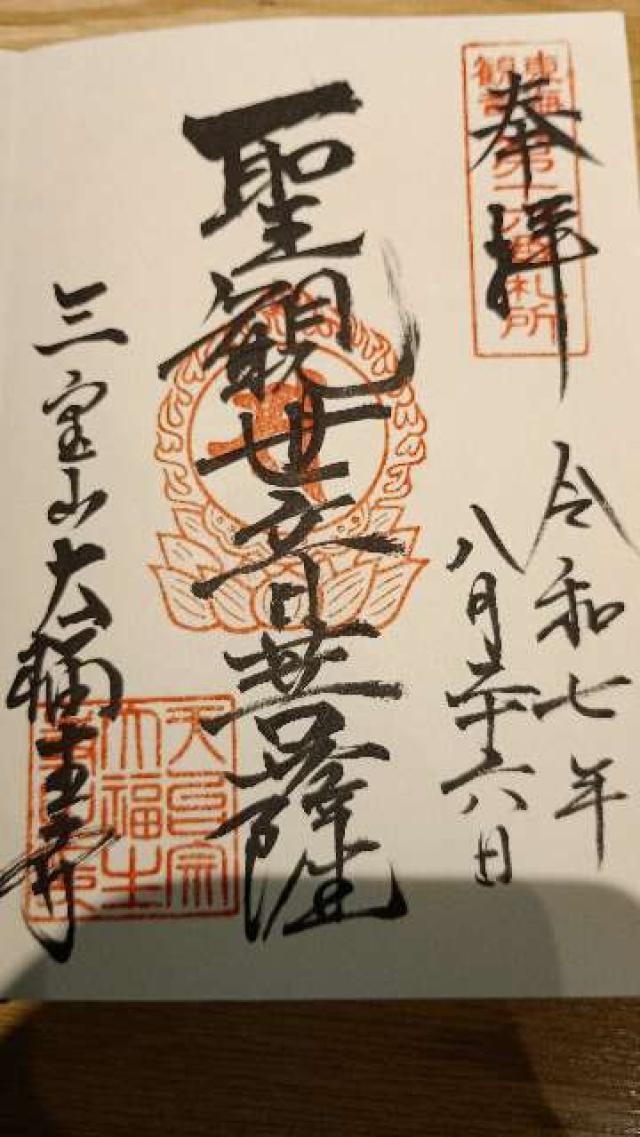 奉拝
東海
観音
第十六番札所
令和七年
八月二十六日
聖観世音菩薩
三宝山大福生寺
天台宗
大福生